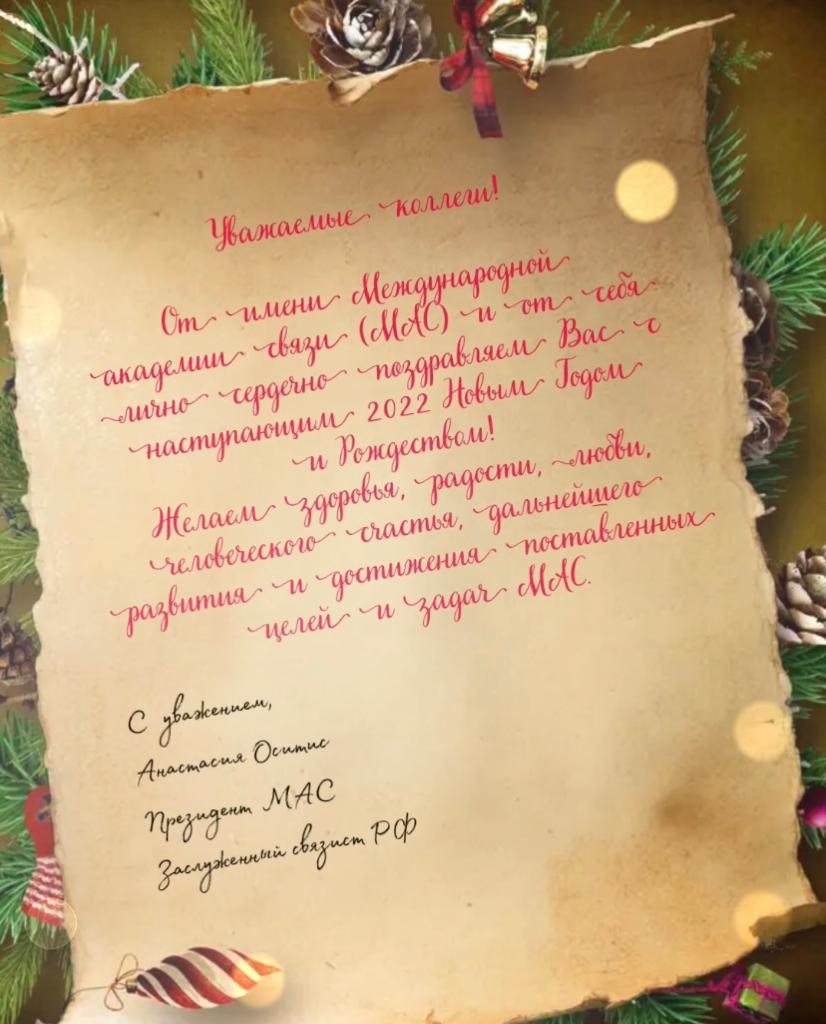 Уважаемые коллеги!
От имени Международной
академии связи (МАС) и от себя
лично сердечно поздравляем Вас с
наступающим 2022 Новым Годом
и Рождеством!
Желаем здоровья, радости, любви,
человеческого счастья, дальнейшего
развития и достижения поставленных
целей и задач МАС.
С уважением,
Анастасия Оситис
Президент МАС
Заслуженный связист РФ